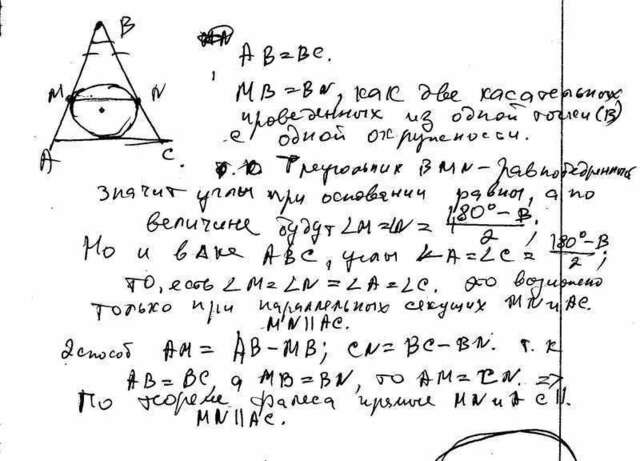 B
M
N
A
C
AB=BC.
MB=BN, как две касательных
проведенных из одной точки (В)
с одной окружности.
Треугольник BMN-равнобедренный
значит углы при основании равны, а по
величине будут ∠M=∠N= 180°-B/2;
Но и в Δке ABC, углы ∠A=∠C= 180°-B/2;
то, есть ∠M=∠N=∠A=∠C. Это возможно
только при параллельных секущих MN и AC.
MN||AC.
2 способ AM= AB-MB; CN=BC-BN. т.к
AB=BC, а MB=BN, то AM=CN. =>
По теореме Фалеса прямые MN и AC ||.
MN||AC.